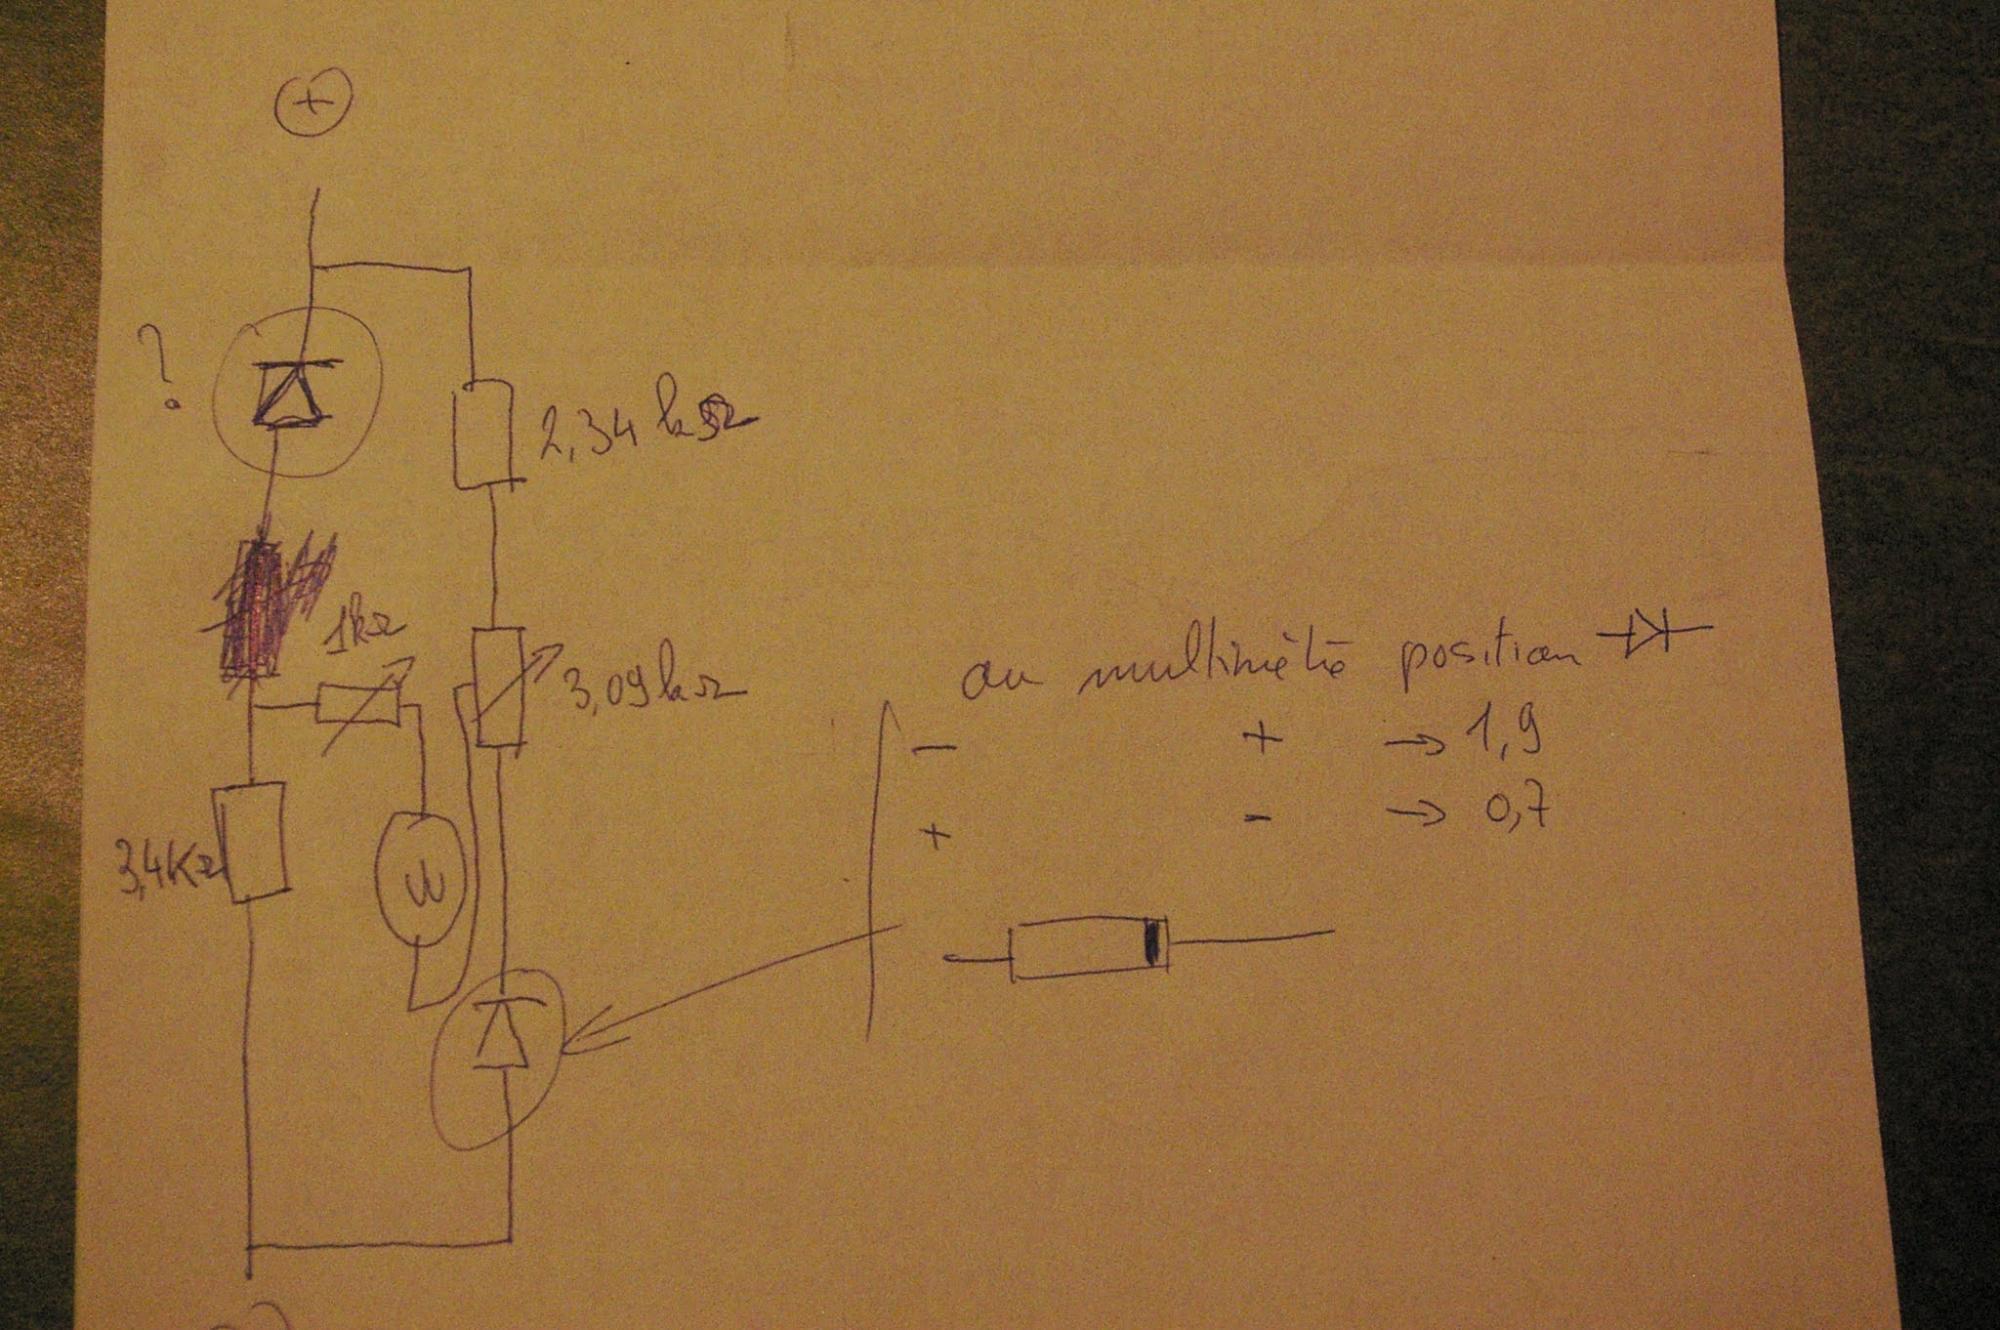 +
?
2,34 kΩ
1kΩ
3,09kΩ
3,4KΩ
au multimètre position
- + → 1,9
+ - → 0,7